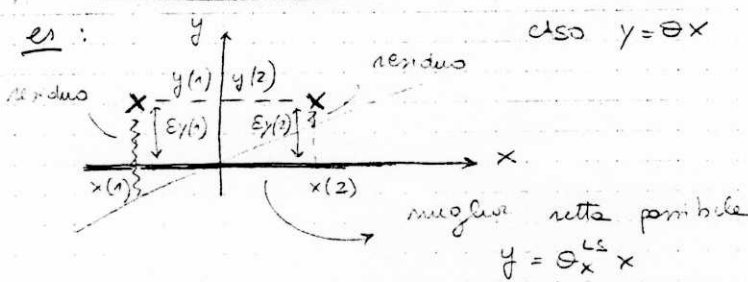 es : y caso y = θx
residuo y(1) y(2) residuo
εy(1) εy(2)
x(1) x(2) x
miglior retta possibile
y = θ_x^LS x